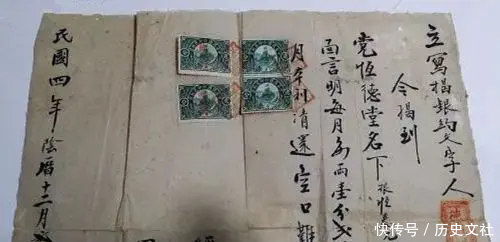 立寫揭銀約文字人
今揭到
党恆德堂名下
面言明每月每兩壹分弍
月本利清還空口難
民國四年陰曆十二月
快传号 / 历史文社